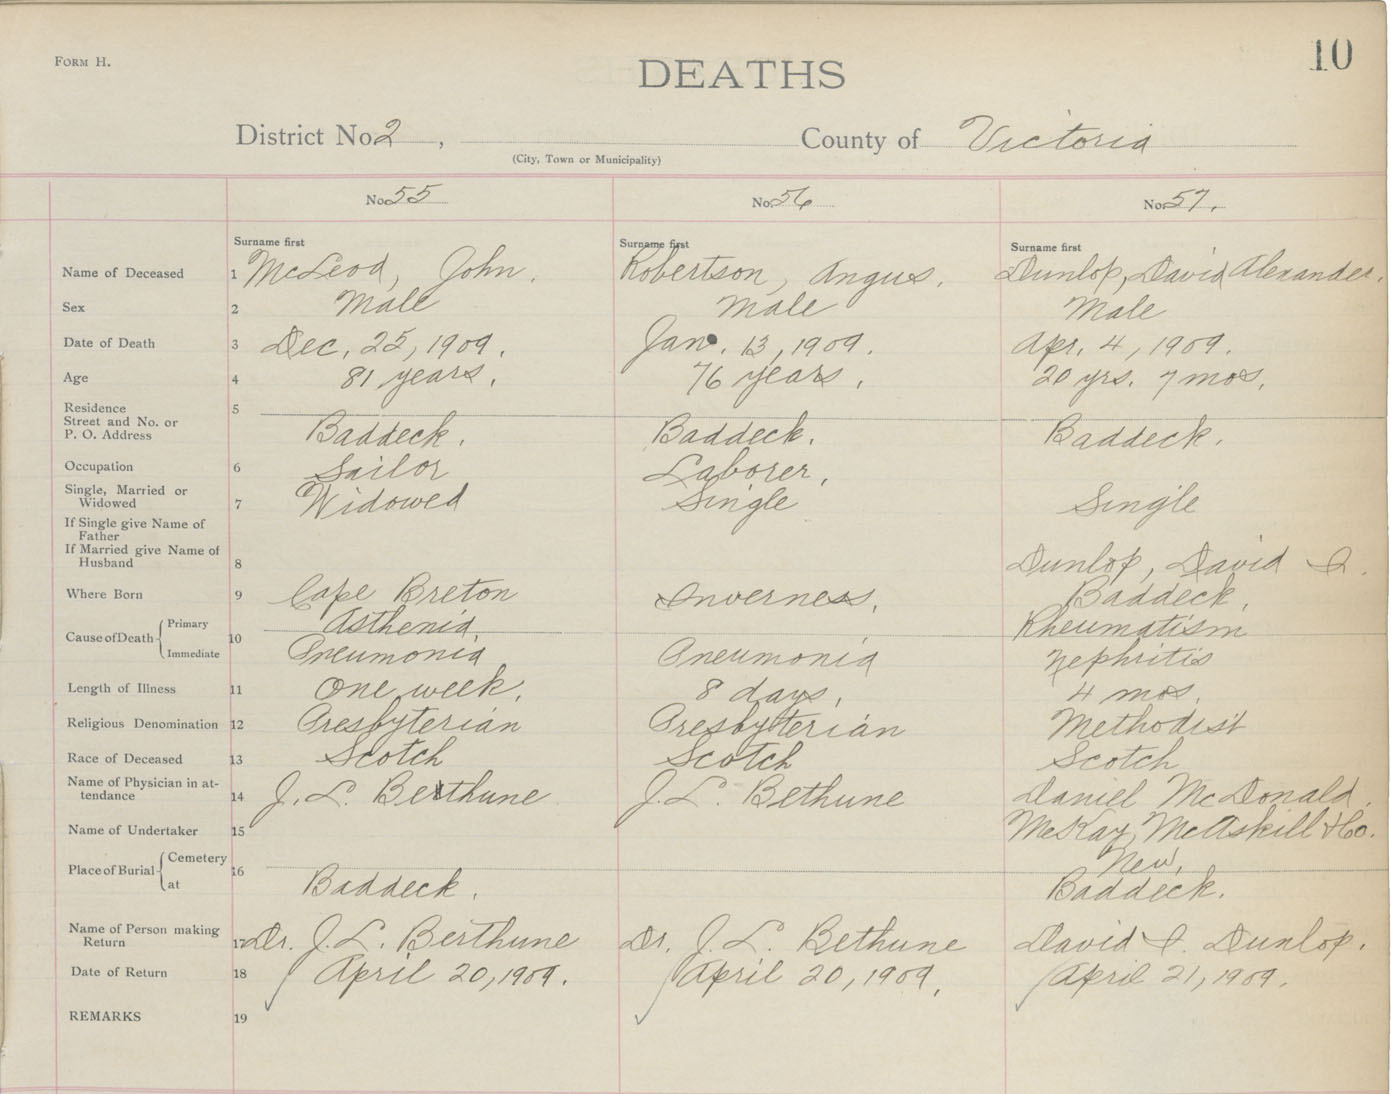 FORM H.
10
DEATHS
District No. 2, County of Victoria
(City, Town or Municipality)
No. 55 No. 56 No. 57.
Surname first Surname first Surname first
Name of Deceased 1 McLeod, John. Robertson, Angus. Dunlop, David Alexander.
Sex 2 Male Male Male
Date of Death 3 Dec. 25, 1909. Jan. 13, 1909. Apr. 4, 1909.
Age 4 81 years. 76 years. 20 yrs. 7 mos.
Residence 5
Street and No. or
P. O. Address Baddeck. Baddeck. Baddeck.
Occupation 6 Sailor Laborer,
Single, Married or
Widowed 7 Widowed Single Single
If Single give Name of
Father
If Married give Name of
Husband 8 Dunlop, David I.
Where Born 9 Cape Breton Inverness. Baddeck,
Cause of Death Primary 10 Asthenia, Rheumatism
Immediate Pneumonia Pneumonia Nephritis
Length of Illness 11 One week. 8 days, 4 mos.
Religious Denomination 12 Presbyterian Presbyterian Methodist
Race of Deceased 13 Scotch Scotch Scotch
Name of Physician in at-
tendance 14 J. L. Bethune J. L. Bethune Daniel McDonald.
Name of Undertaker 15 McKay, McAskill & Co.
Place of Burial Cemetery 16 New,
at Baddeck. Baddeck.
Name of Person making
Return 17 Dr. J. L. Berthune Dr. J. L. Bethune David I. Dunlop.
Date of Return 18 April 20, 1909. April 20, 1909. April 21, 1909.
REMARKS 19